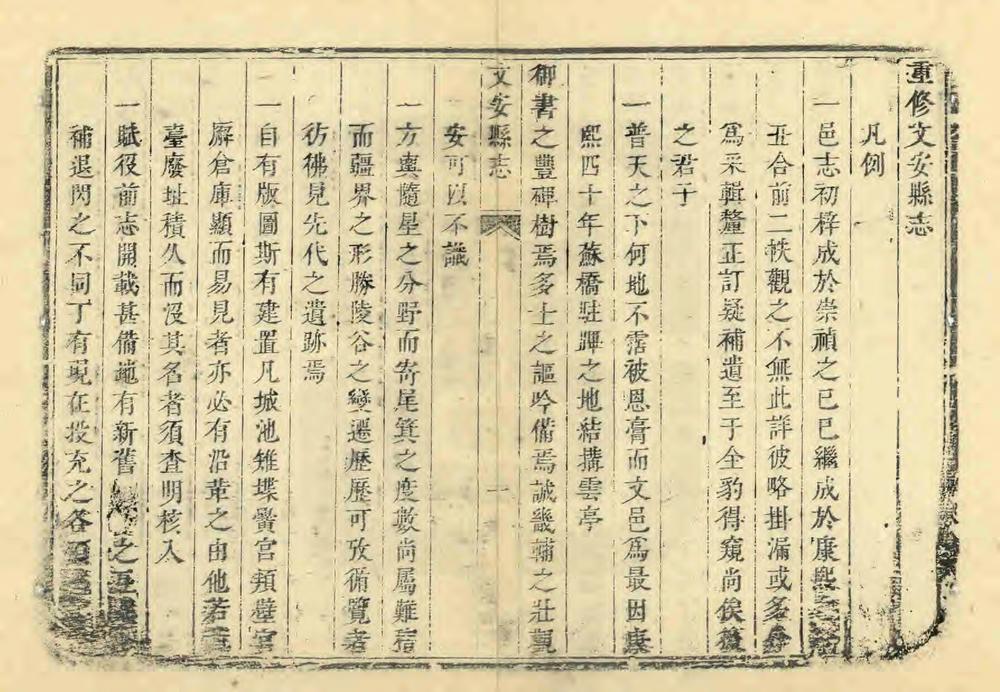 重修文安縣志
凡例
一邑志初梓成於崇禎之己巳繼成於康熙之癸
丑合前二帙觀之不無此詳彼略掛漏或多今
爲采輯釐正訂疑補遺至于全豹得窺尚俟後
之君子
一普天之下何地不霑被恩膏而文邑爲最因康
熙四十年蘇橋駐蹕之地結搆雲亭
御書之豐碑樹焉多士之謳吟備焉誠畿輔之壯觀
文安縣志
一
安可以不識
一方輿隨星之分野而寄尾箕之度數尚屬難稽
而疆界之形勝陵谷之變遷歷歷可攷循覽者
彷彿見先代之遺跡焉
一自有版圖斯有建置凡城池雉堞黌宮頖壁官
廨倉庫顯而易見者亦必有沿革之由他若
臺廢址積久而沒其名者須查明核入
一賦役前志開載甚備地有新舊之
補退閃之不同丁有現在投充之各項